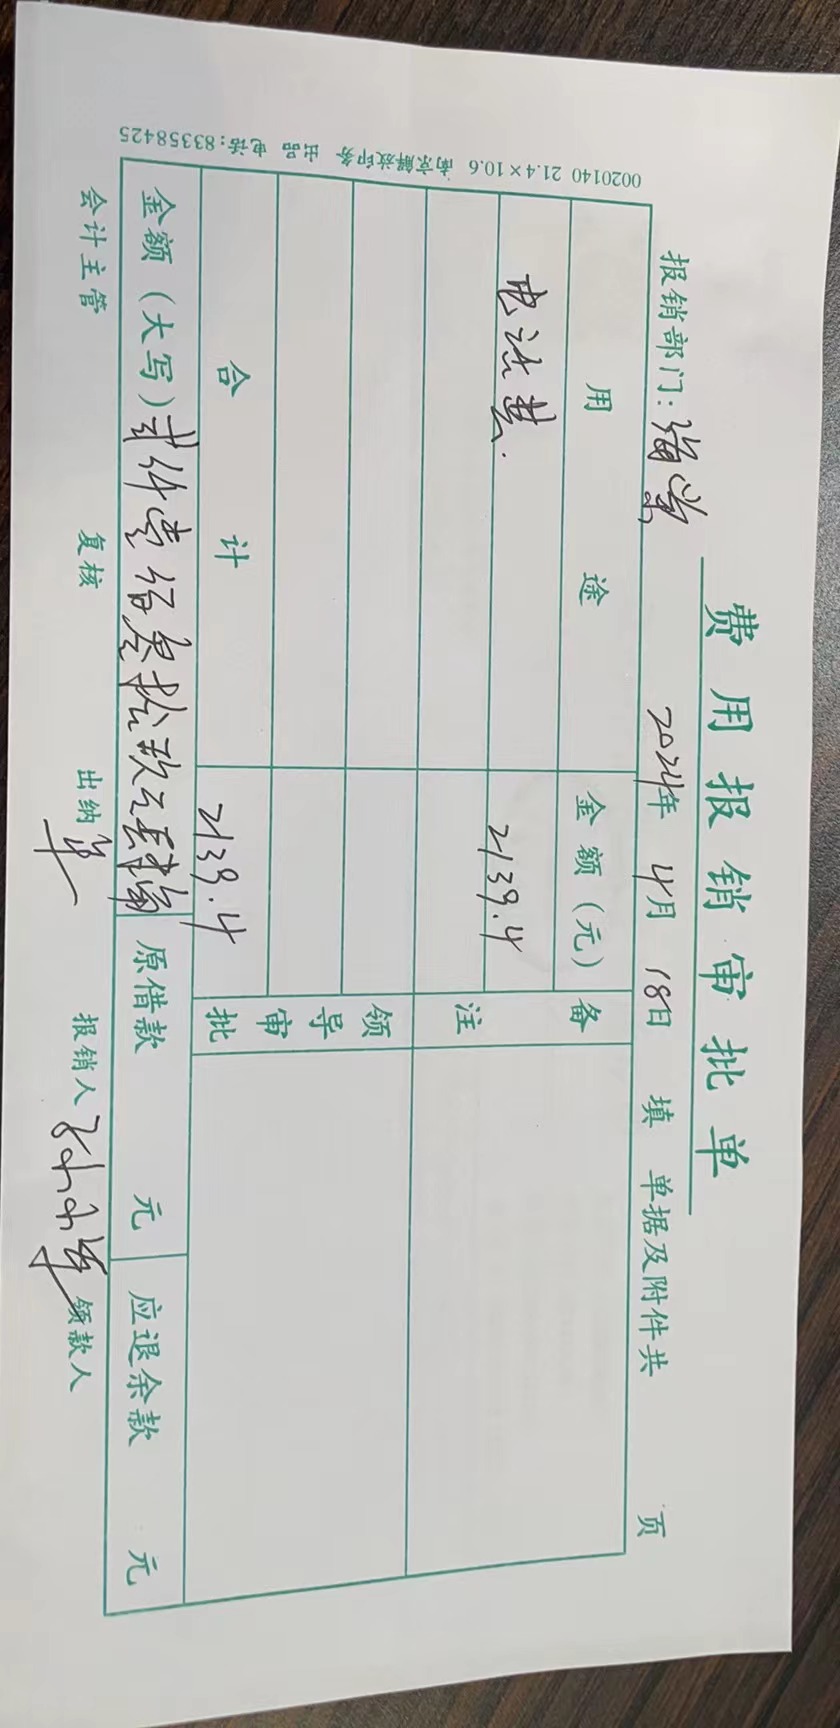 费用报销审批单
报销部门: 2024年 4月 18日 填 单据及附件共 页
用 途 金额(元) 备注
电话费. 2139.4
领导审批
合 计 2139.4
金额(大写)贰仟壹佰叁拾玖元肆角 原借款 元 应退余款 元
会计主管 复核 出纳 报销人 领款人
0020140 21.4×10.6 南京解放印务 出品 电话:83358425